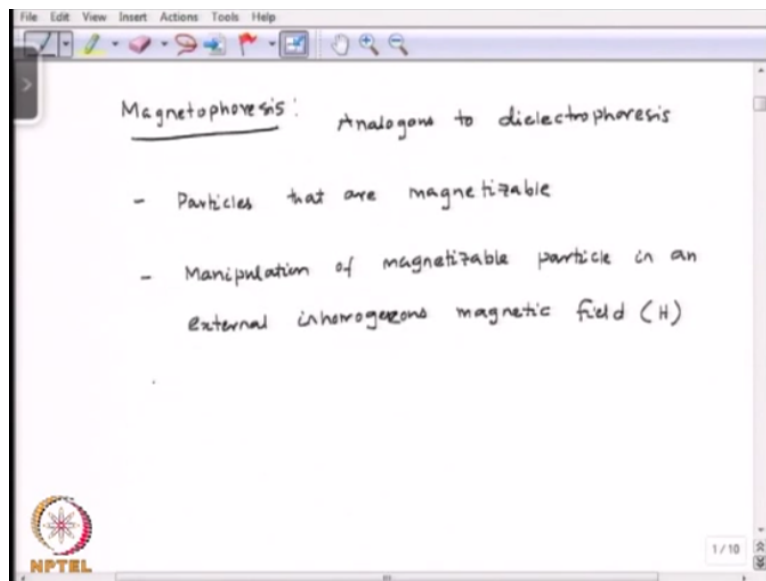 File Edit View Insert Actions Tools Help
Magnetophoresis: Analogous to dielectrophoresis
- Particles that are magnetizable
- Manipulation of magnetizable particle in an
external inhomogenous magnetic field (H)
NPTEL
1 / 10